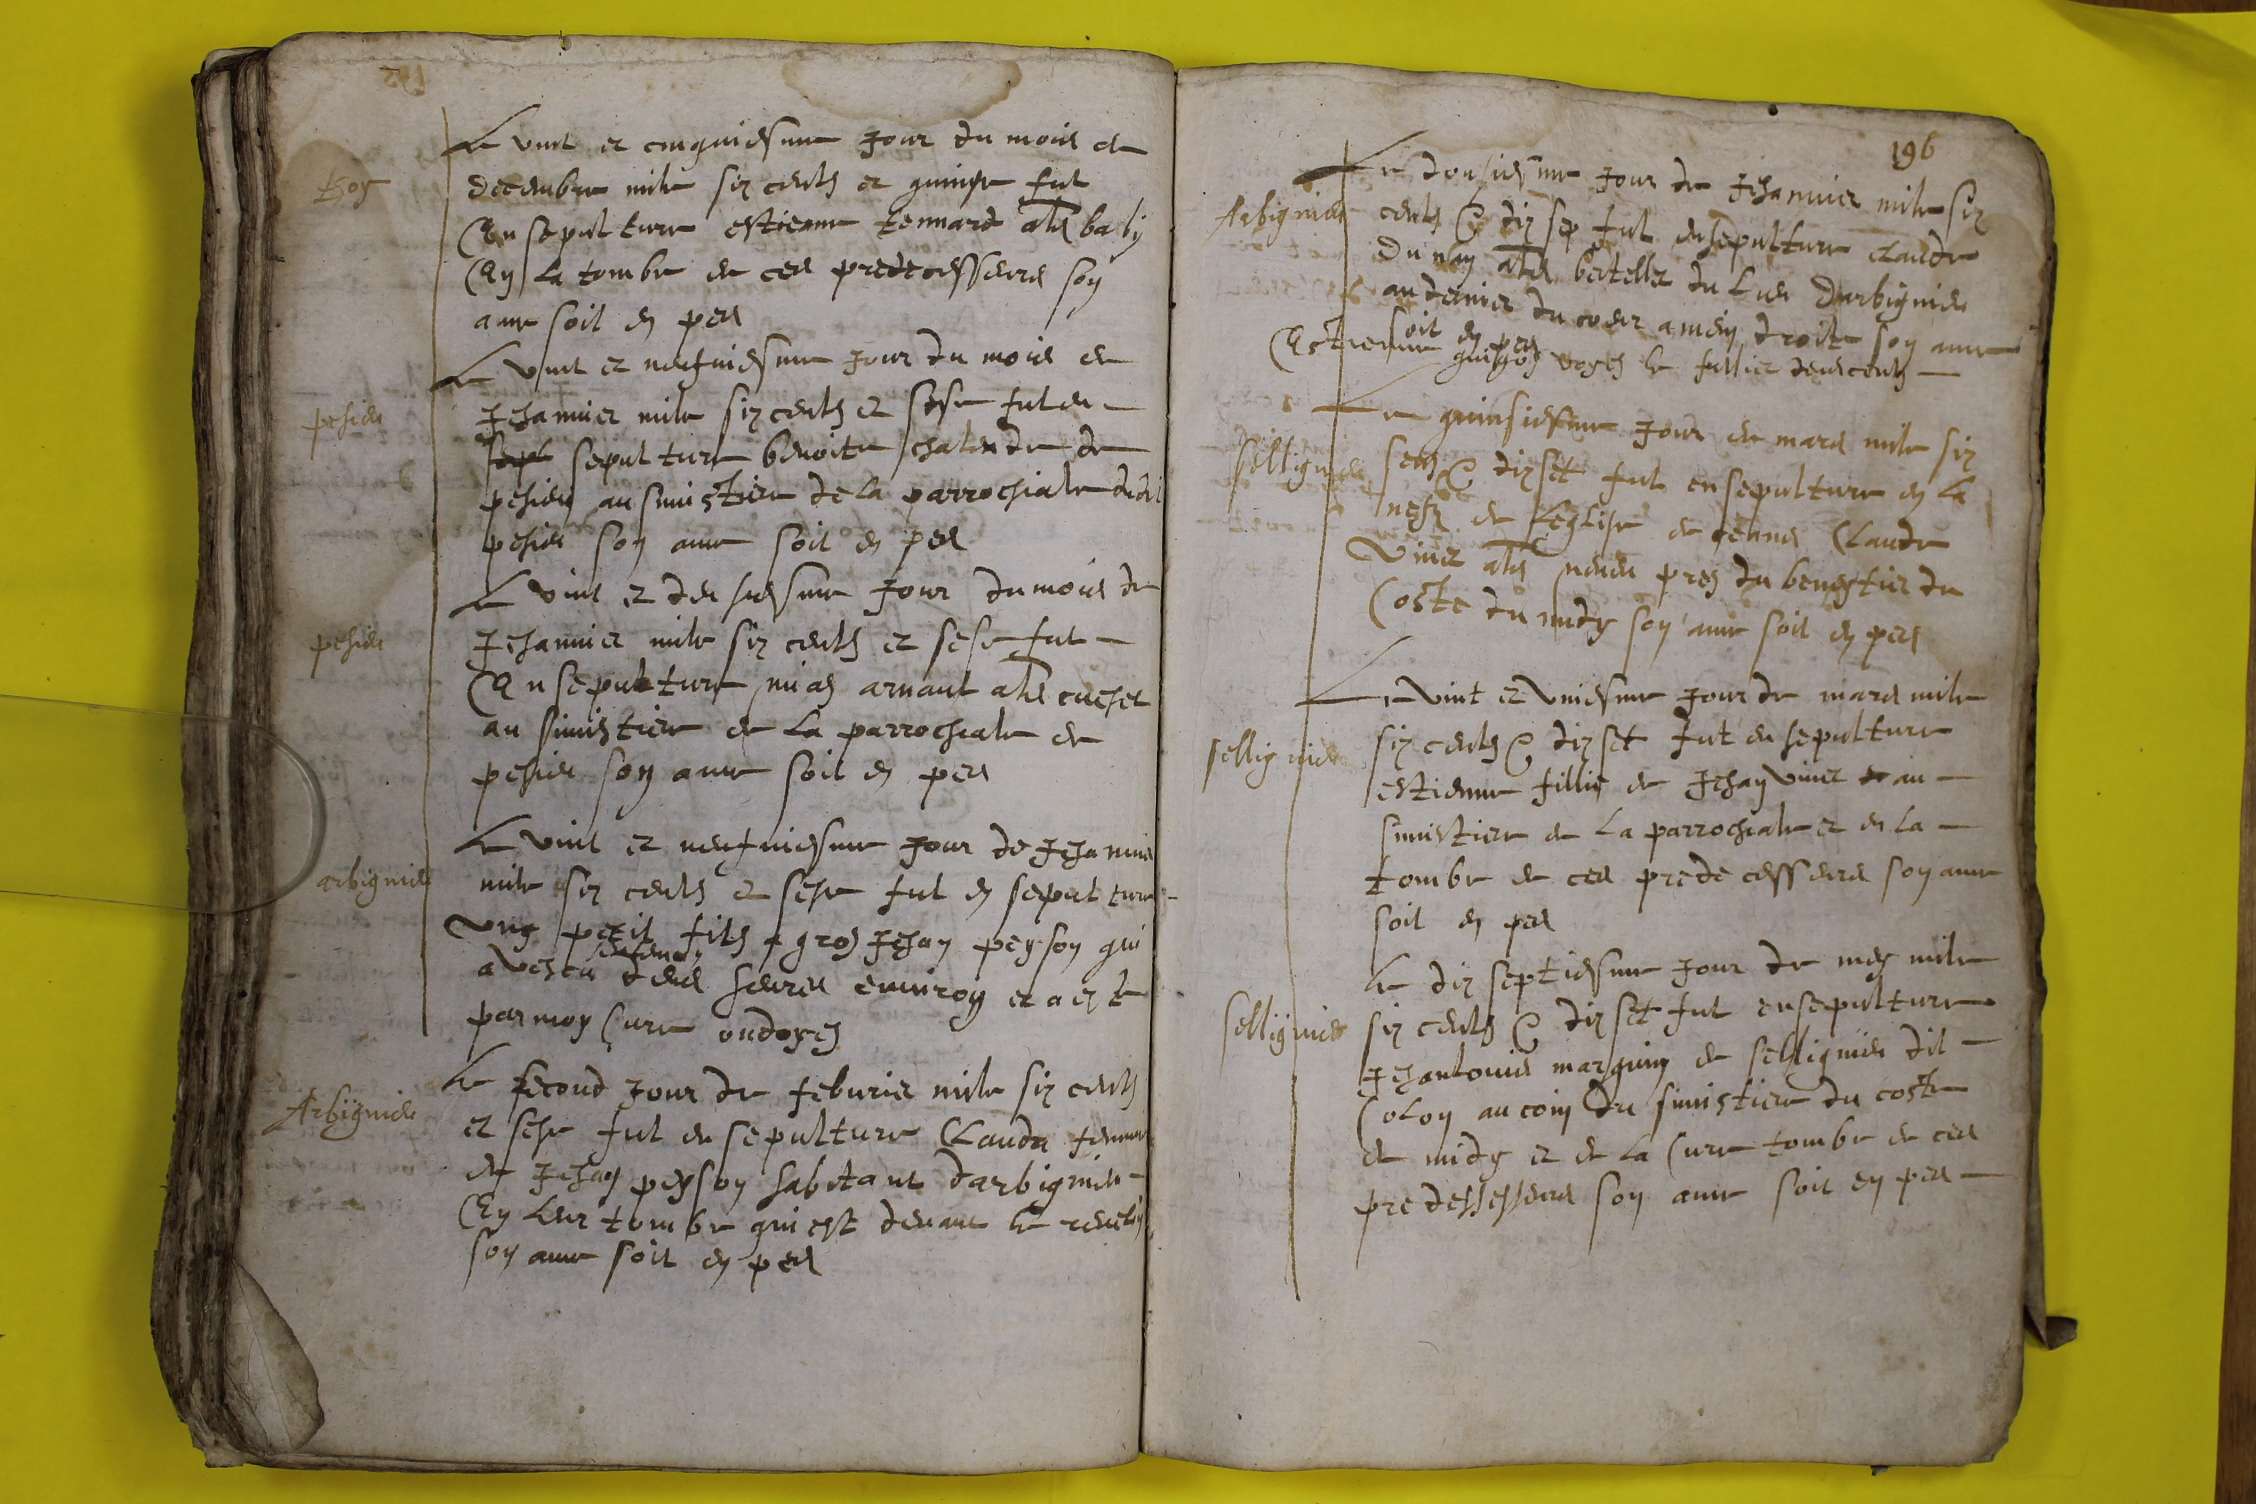 Le vint et cinquiesme Jour du mois de
decembre mile six cents et quinse fut
Ensepulture estienne tennard als baly
En la tombe de ces predecesseurs son
ame soit en pes
pesieu
Le vint et neufviesme Jour du mois de
Jehanvier mile six cents et sese fut en
sepulture benoite chalende de
pesieu au simistiere de la parrochiale dudit
pesieu son ame soit en pes
pesieu
Le vint et deusiesme Jour du mois de
Jehanvier mile six cents et sese fut
Ensepulture mias arnaut als cuchet
au simistiere de la parrochiale de
pesieu son ame soit en pes
arbignieu
Le vint et neufviesme Jour de Jehanvier
mile six cents et sese fut en sepulture
ung petit fils a gros Jehan peyson qui
a vescu deus heures environ et a este
par moy Cure ondoyes
Arbignieu
Le second Jour de feburier mile six cents
et sese fut en sepulture Clauda femme
de Jehan peyson habitant darbignieu
En leur tombe qui est devant le
son ame soit en pes
196
Arbignieu
Le dousiesme Jour de Jehanvier mile six
cents & dix sep fut ensepulture Claude
du nan als bertellet du lieu Darbignieu
au dernier du coeur a mein droite son ame
soit en pes
Estienne voyes le fullier deus cents
Sellignieu
Le quinsiesme Jour de mars mile six
sens & dix set fut ensepulture en la
nefz de Leglise de Claude
vivier als neveu pres du benestier du
Coste du midy son ame soit en pes
sellignieu
Le vint et uniesme Jour de mars mile
six cents & dix set fut ensepulture
estienne fillie de Jehan vivier au
simistiere de la parrochiale et en la
tombe de ces predecesseurs son ame
soit en pes
sellignieu
Le dix septiesme Jour de mey mile
six cents & dix set fut ensepulture
Jehantouin marguin de sellignieu dit
Colon au coin du simistiere du coste
de midy et de la Cure tombe de ces
predessesseurs son ame soit en pes